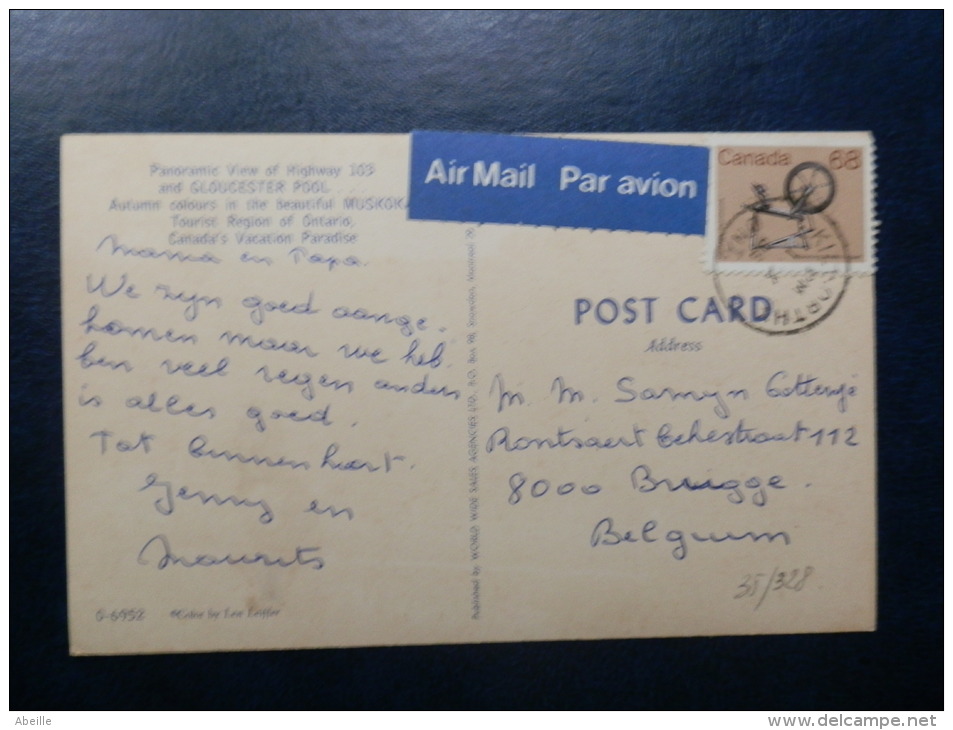 Panoramic View of Highway 103
and GLOUCESTER POOL
Autumn colours in the beautiful MUSKOKA
Tourist Region of Ontario,
Canada's Vacation Paradise
Mama en Papa.
We zijn goed aange-
komen maar we heb-
ben veel regen anders
is alles goed.
Tot binnenkort.
Jenny en
Maurits
©Color by
Published by WORLD WIDE SALES AGENCIES LTD., P.O. Box
Air Mail Par avion
Canada 68
POST CARD
Address
M. M. Samyn
112
8000 Brugge.
Belgium
35/328.
Abeille
www.delcampe.net